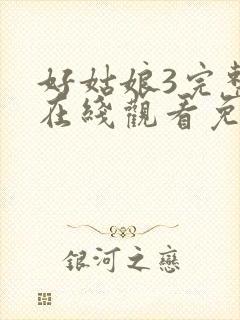 好姑娘3完整
在綫觀看免
銀河之戀